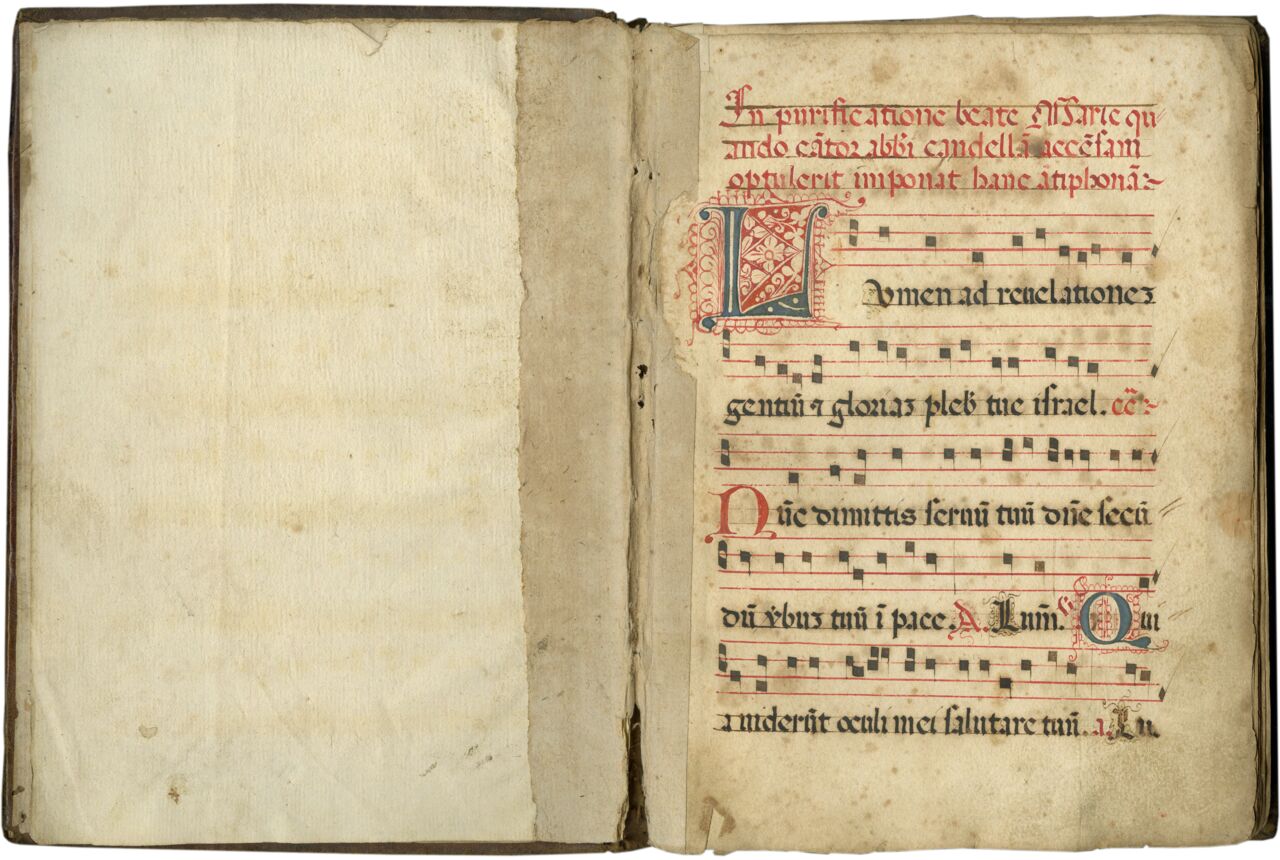 In purificatione beate Marie qu
ando cātor abbī candellā accēsam
optulerit imponat hanc ātiphonā
Lvmen ad reuelationeꝫ
gentiū ⁊ gloriaꝫ pleb̄ tue israel.
Nūc dimittis seruū tuū dn̄e secū
dū v̄buꝫ tuū ī pace. A. Lum̄. Qui
a uiderūt oculi mei salutare tuū. a. Lu.